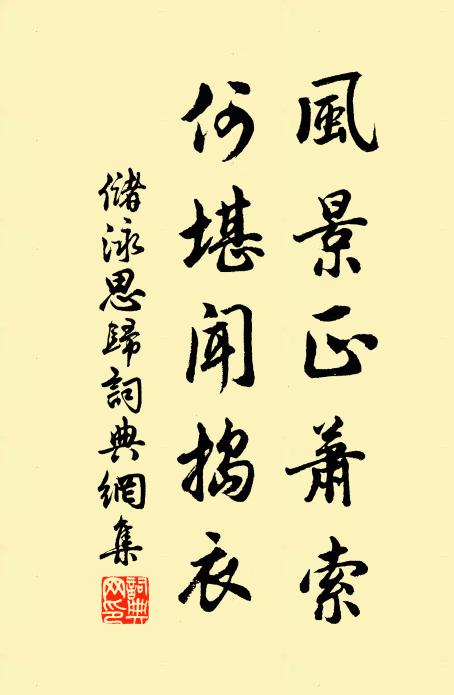 風景正蕭索
何堪聞搗衣
儲泳思歸詞典網集
詞典網印